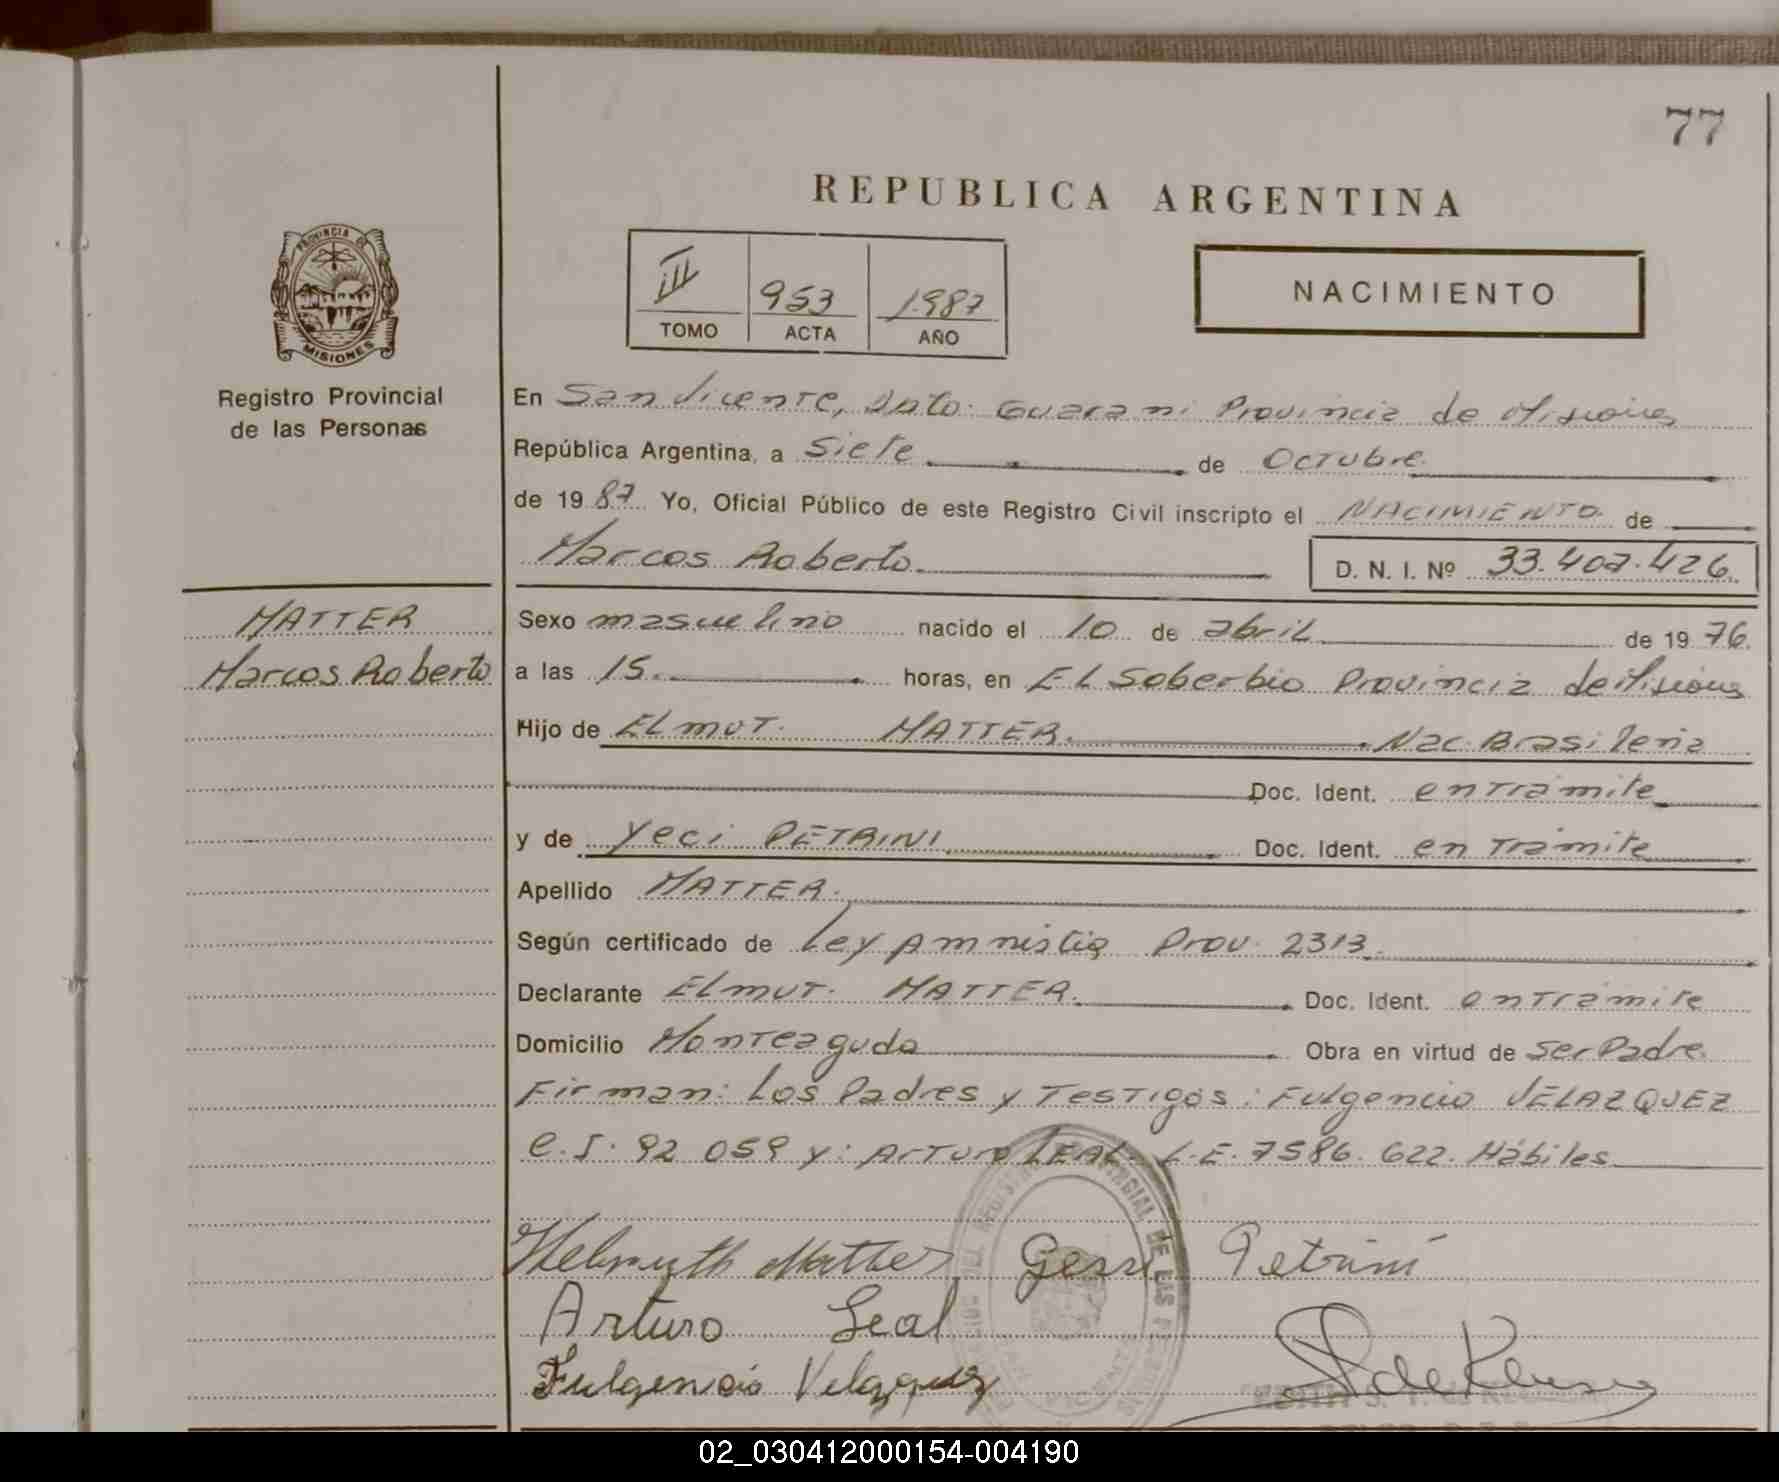 77
REPUBLICA ARGENTINA
PROVINCIA DE
MISIONES
Registro Provincial
de las Personas
III 953 1.987
TOMO ACTA AÑO
NACIMIENTO
En San Vicente, Dpto. Guarani Provincia de Misiones
República Argentina, a Siete de Octubre
de 19 87. Yo, Oficial Público de este Registro Civil inscripto el NACIMIENTO de
Marcos Roberto D. N. I. Nº 33.402.426
MATTER
Marcos Roberto
Sexo masculino nacido el 10 de abril de 19 76.
a las 15. horas, en El Soberbio Provincia de Misiones
Hijo de ELmUT. MATTER. Nac. Brasileña
Doc. Ident. en trámite
y de Yeci PETRINI Doc. Ident. en Trámite
Apellido MATTER.
Según certificado de Ley Amnistia Prov. 2313.
Declarante ELmUT. MATTER. Doc. Ident. en trámite
Domicilio Monteagudo Obra en virtud de ser Padre
Firman: Los Padres y Testigos: Fulgencio VELAZQUEZ
C.I. 92 059 y: Arturo LEAL. L.E. 7586.622. Hábiles
Helmuth Matter Gessi Petrini
Arturo Leal
Fulgencio Velazquez
02_030412000154-004190